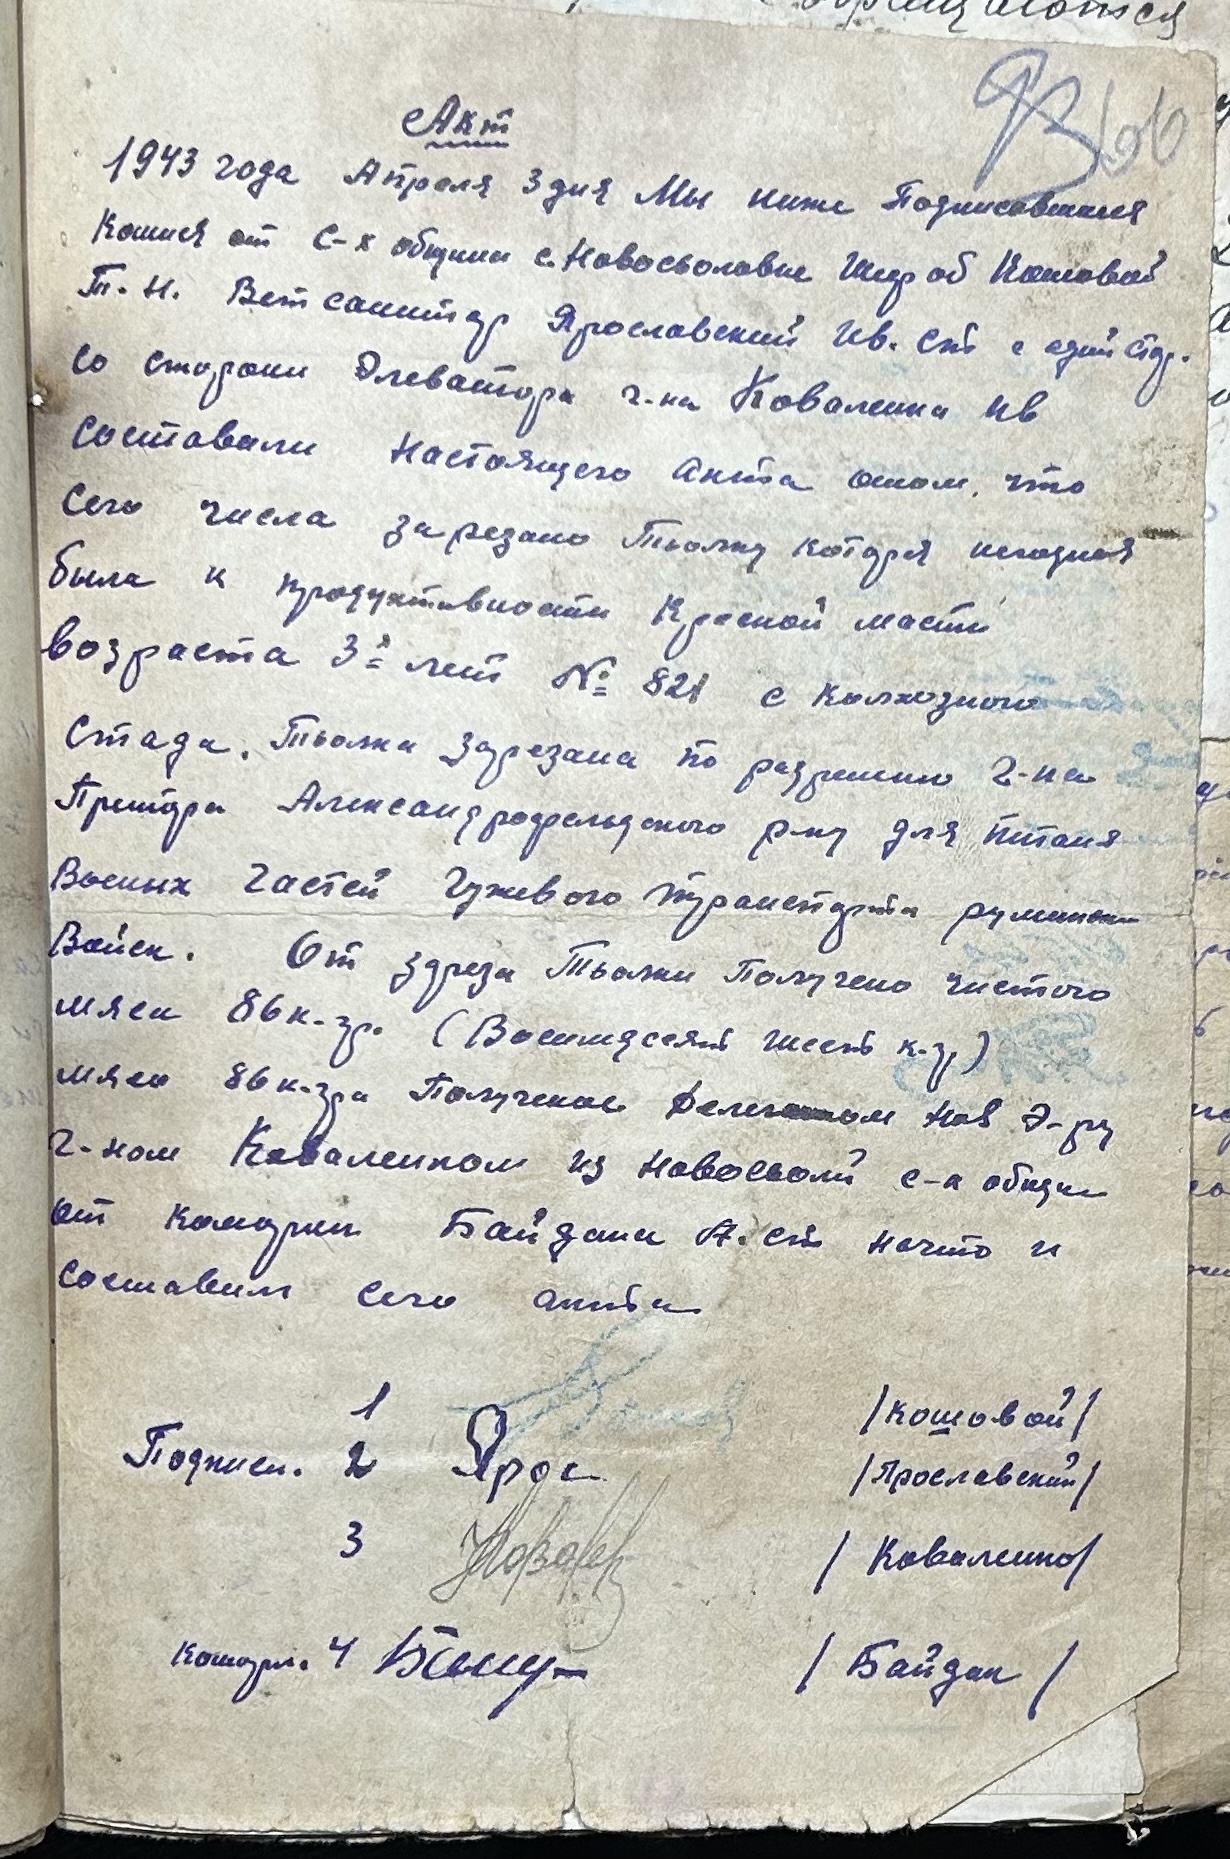 Акт
1943 года Апреля 3 дня Мы ниже Подписавшися
Комися от с-х общини с. Новосьоловне Шир об Кошовой
Т. Н. Ветсанитар Ярославский Ив. Ст с
со сторони Элеватора г-на Коваленка Ив
составили Настоящего Акта отом, что
Сего числа зарезано Тьолку которя негодная
была к продуктивности Красной масти
возраста 3х лет № 821 с колхозного
Стада. Тьолка зарезана по разрешению г-на
Претора Александрофельдского р-ну для питаня
Военых Частей Гужевого транспорта румински
Войск. От зареза Тьолки Получено чистого
мяса 86 к-гр. (Восимдесят шесть к-гр)
мясо 86 к-гра Получено Нов Э-ру
г-ном Коваленком из Новосьоли с-х общини
от коморни Байдана А. Ст начто и
составили сего акта
1 /Кошовой/
Подписи. 2 Ярос /Ярославский/
3 Ковален /Коваленко/
Коморн. 4 /Байдан/